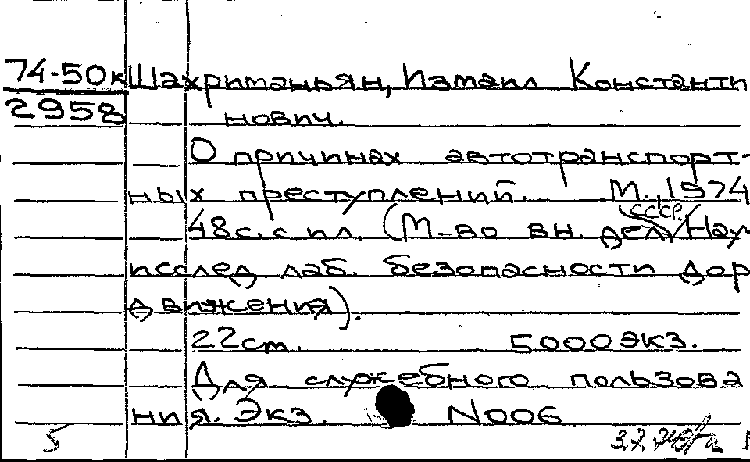 74-50к Шахриманьян, Измаил Константи
2958 нович.
О причинах автотранспорт-
ных преступлений. М., 1974
48с. с ил. (М-во вн. дел СССР. Науч
исслед лаб. безопасности дор
движения).
22см. 5000экз.
Для служебного пользова
ния. Экз. №006
5